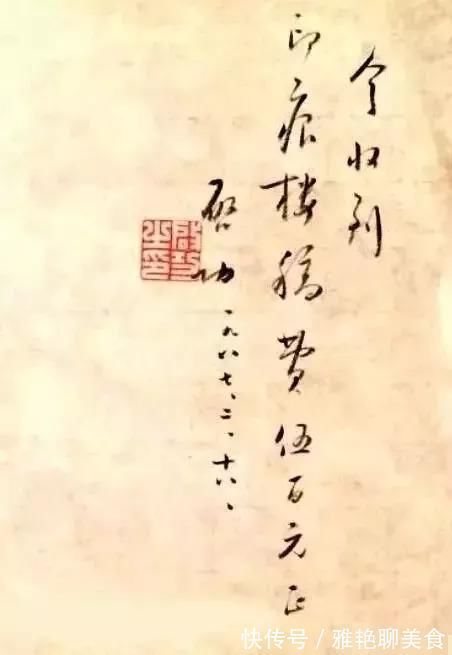 今收到
印痕楼稿费伍百元正
启功
一九八七、二、十六、
启功之印
快传号/雅艳聊美食